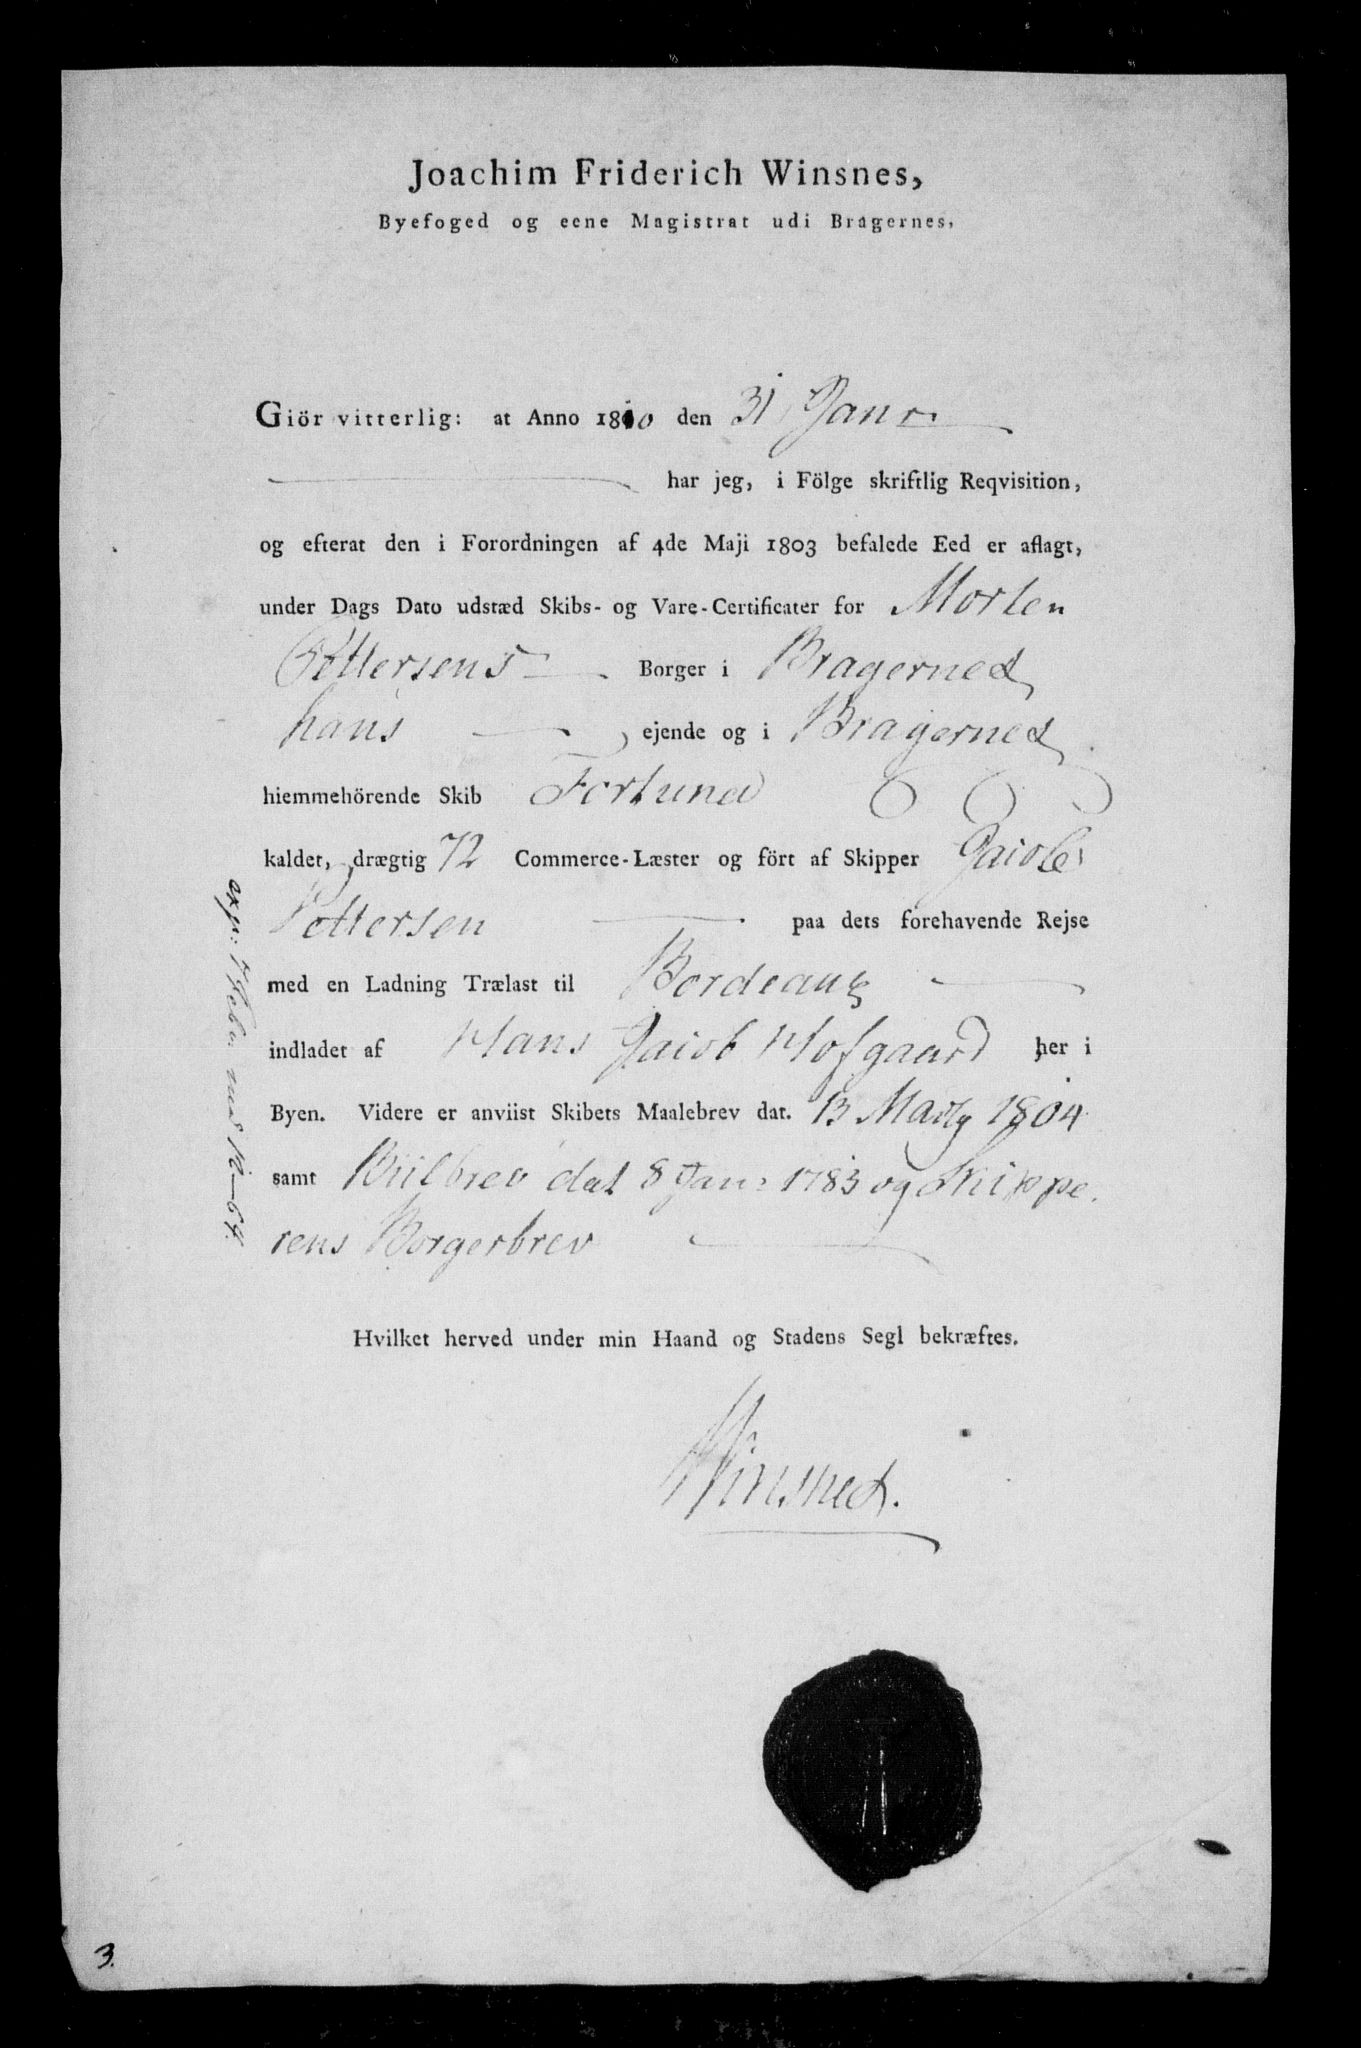 Joachim Friderich Winsnes,
Byefoged og eene Magistrat udi Bragernes,
Giör vitterlig: at Anno 1810 den 31 Janr
har jeg, i Fölge skriftlig Reqvisition,
og efterat den i Forordningen af 4de Maji 1803 befalede Eed er aflagt,
under Dags Dato udstæd Skibs- og Vare-Certificater for Morten
Pettersens Borger i Bragernes
hans ejende og i Bragernes
hiemmehörende Skib Fortuna
kaldet, drægtig 72 Commerce-Læster og fört af Skipper Jacob
Pettersen paa dets forehavende Rejse
med en Ladning Trælast til Bordeaux
indladet af Hans Jacob Hofgaard her i
Byen. Videre er anviist Skibets Maalebrev dat. 13 1804
samt Biilbrev dat 8 Jan: 1783 og Skippe
rens Borgerbrev
Hvilket herved under min Haand og Stadens Segl bekræftes.
Winsnes.
exp: 1 Febr. med 64.
3.